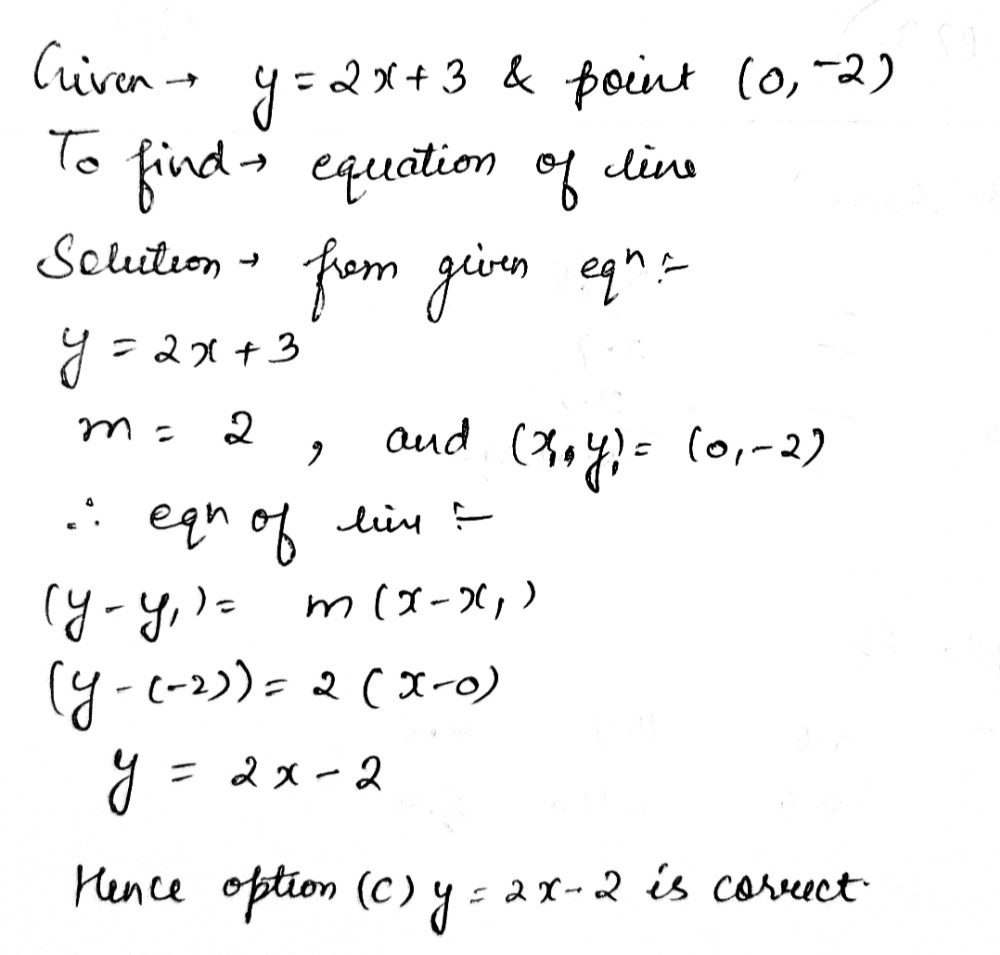 Given → y = 2x + 3 & point (0, -2)
To find → equation of line
Solution → from given eqⁿ :-
y = 2x + 3
m = 2 , and (x₁, y₁) = (0, -2)
∴ eqn of line :-
(y - y₁) = m (x - x₁)
(y - (-2)) = 2 (x - 0)
y = 2x - 2
Hence option (C) y = 2x - 2 is correct.